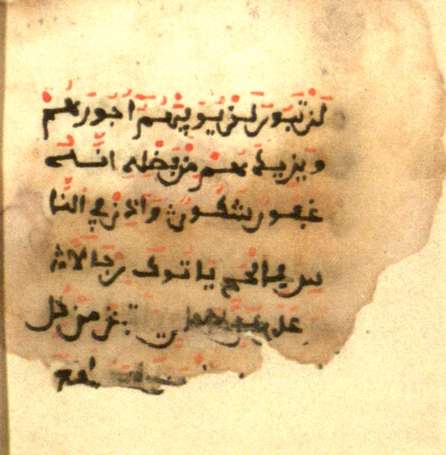 لن تبور ليوفيهم اجورهم
ويزيدهم من فضله انه
غفور شكور واذن في النا
س بالحج ياتوك رجالا و
من كل